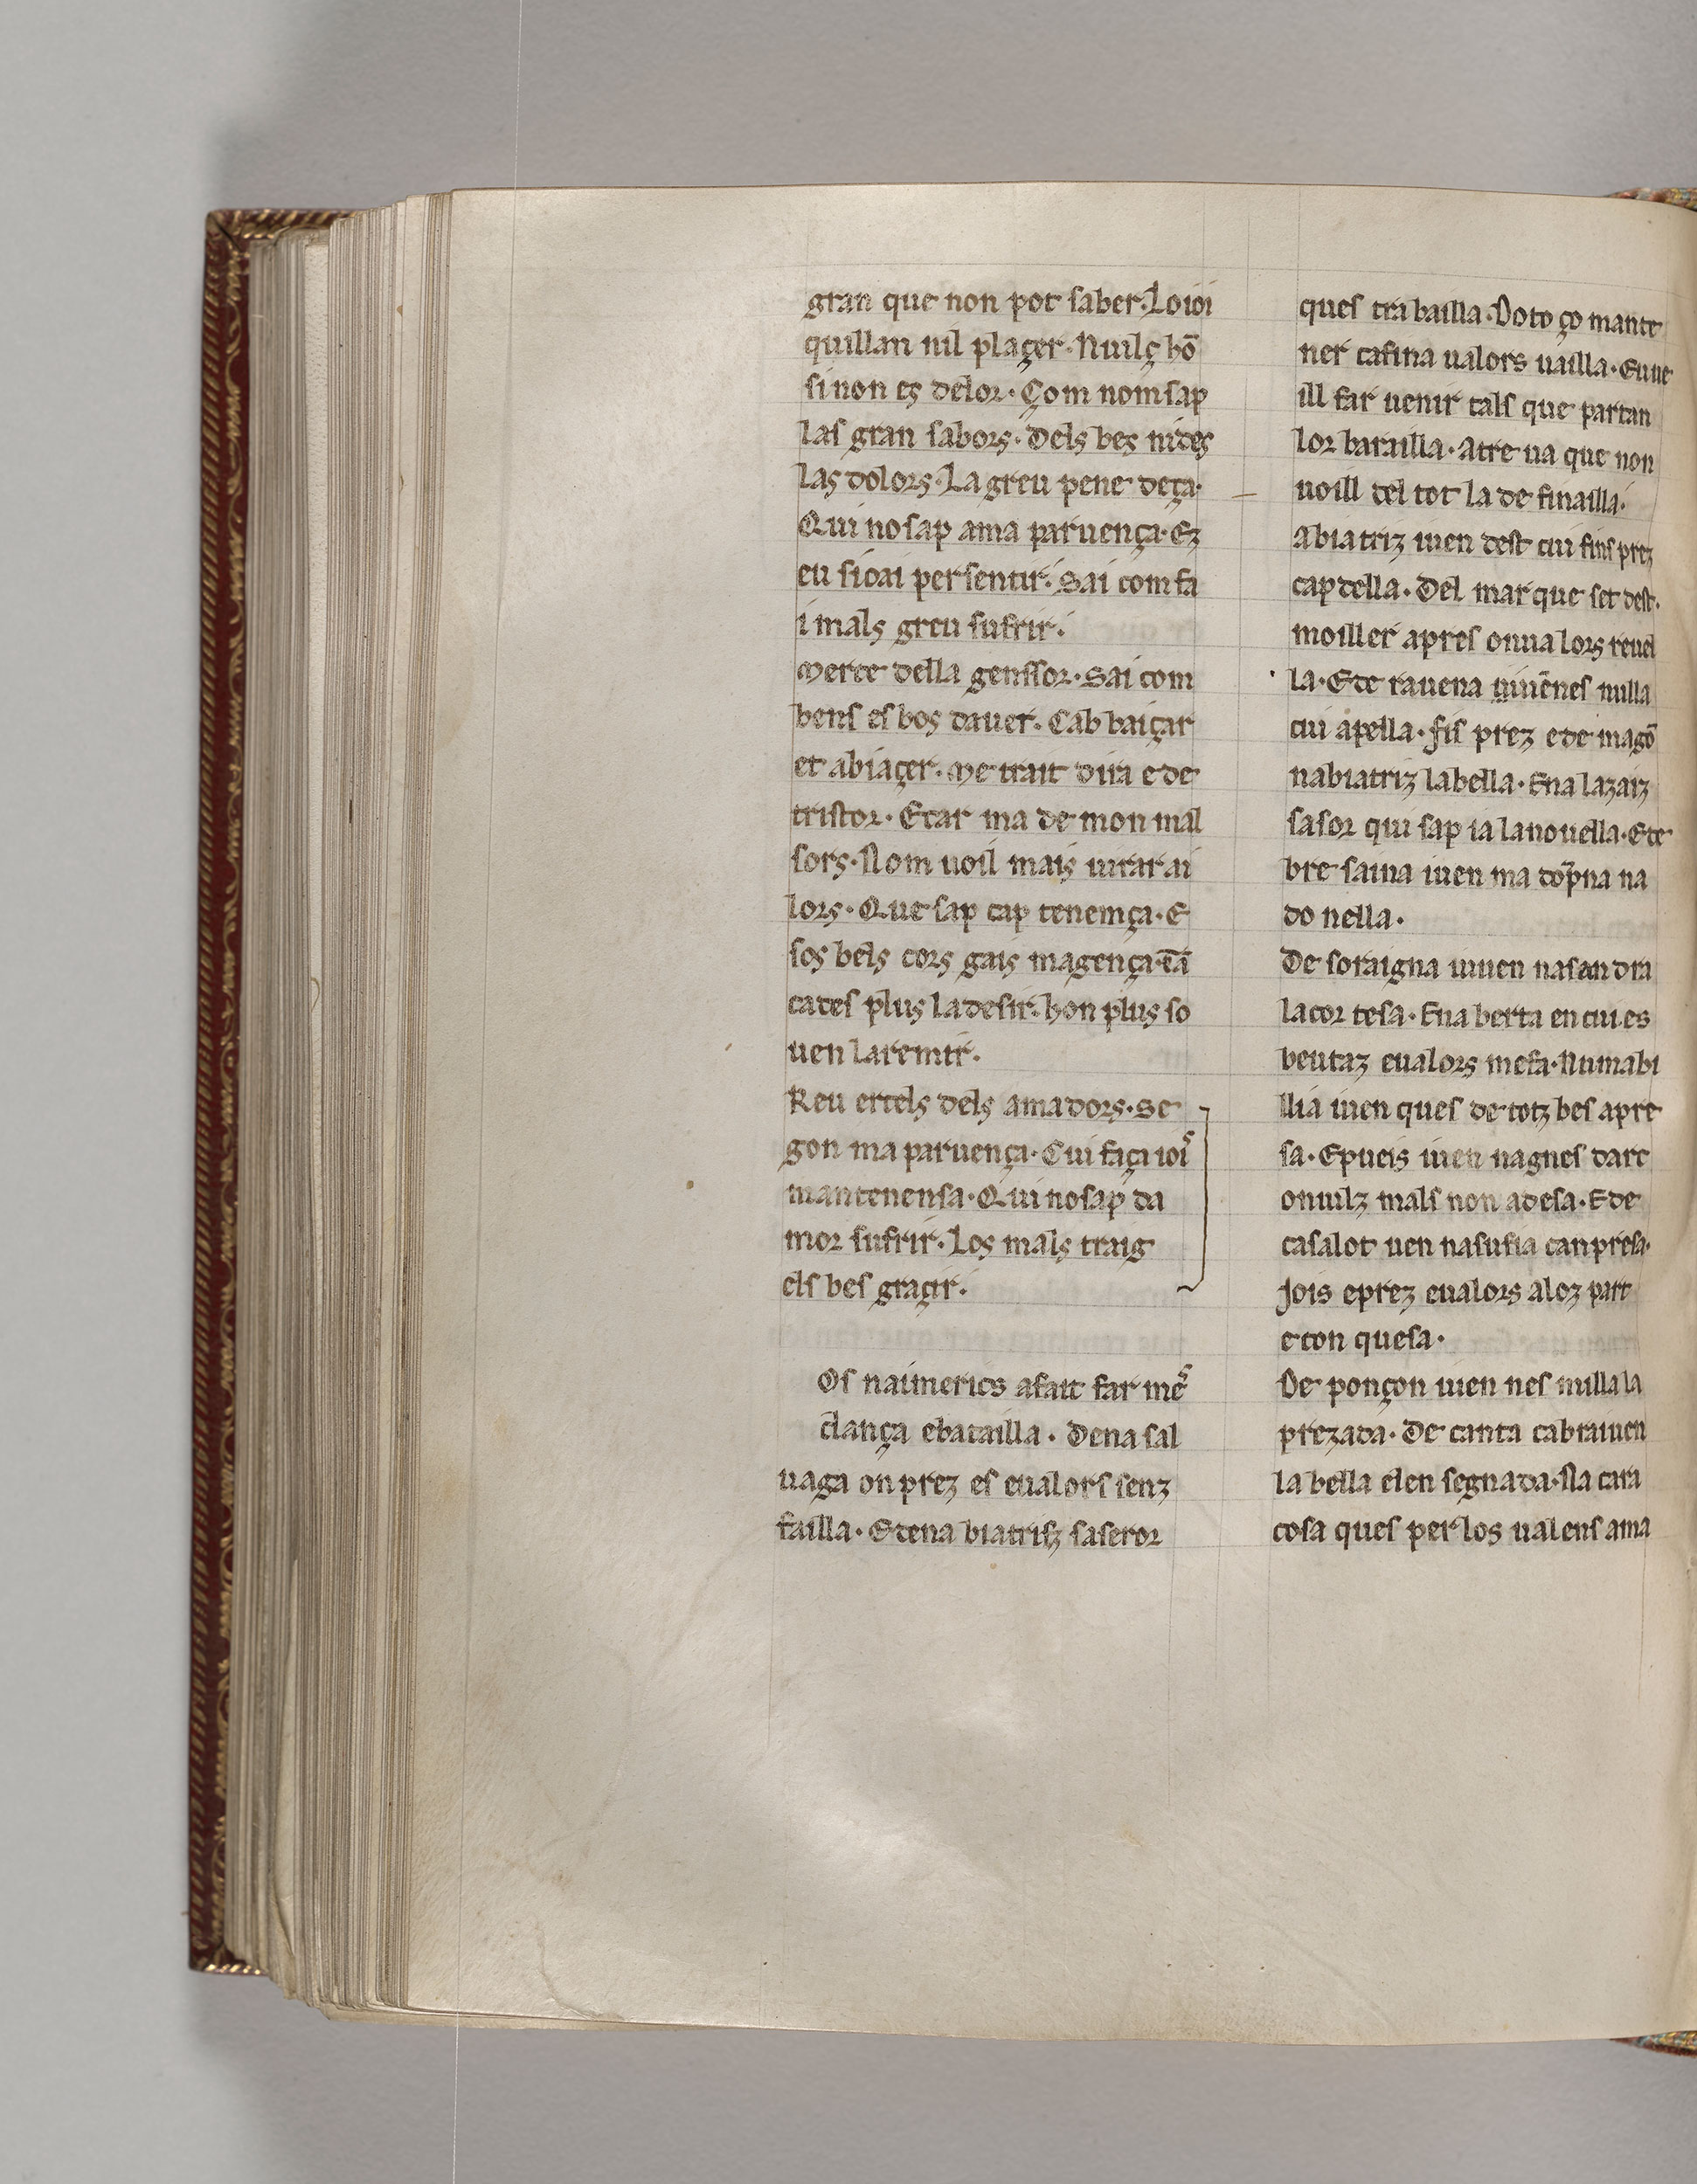 gran que non pot saber·Loioi
quillan nil plaçer·Nuilç hō
si non es delor·Com nom sap
las gran sabors·Dels bes nides
las dolors·La greu pene deça·
Qui no sap ama paruença·Ez
eu si orai per sentir·Sai com fa
i mals greu sufrir·
Merce della genssor·Sai com
bens es bos dauer·Cab baiçar
et abiaçer·Me trait dira e de
tristor·Etar ma de mon mal
sors·Nom uoil mais uirar ai
lors·Que sap cap tenemça·E
sos bels cors gais magença·cā
cates plus la desir·hon plus so
uen laremir·
Reu ertels dels amadors·Se
gon ma paruença·Cui faça ioi
mantenensa·Qui no sap da
mor sufrir·Los mals traig
els bes graçir·
Os naimerics afait far me
clança ebatailla·Dena sal
uaga on prez es eualors senz
failla·Etena biatrisz saseror
ques tra bailla·Doto ço mante
ner cafina ualors uailla·Euue
ill far uenir tals que partan
lor barailla·Atre ua que non
uoill del tot la de finailla·
Abiatriz iuen dest cui fins prez
captella·Del marque set dest·
moiller apres onua lors reuel
la·Ete rauena iuuēnes nulla
cui apella·fis prez ede magō
nabiatriz labella·Ena lazaiz
sasor qui sap ia lanouella·Ete
bre saina iuen ma dōpna na
do nella·
De soraigna iuuen nasandra
lacor tesa·Ena berta en cui·es
beutaz eualors mesa·Numabi
llia iuen ques de totz bes apre
sa·Epueis iuen nagnes darc
onuilz mals non adesa·Ede
casalot uen nasufia canpresa·
Jois eprez eualors aloz part
e con quesa·
De ponçon iuen nes millala
prezada·De canta cabraiuen
la bella elen segnada·Na cara
cosa ques per los ualens ama